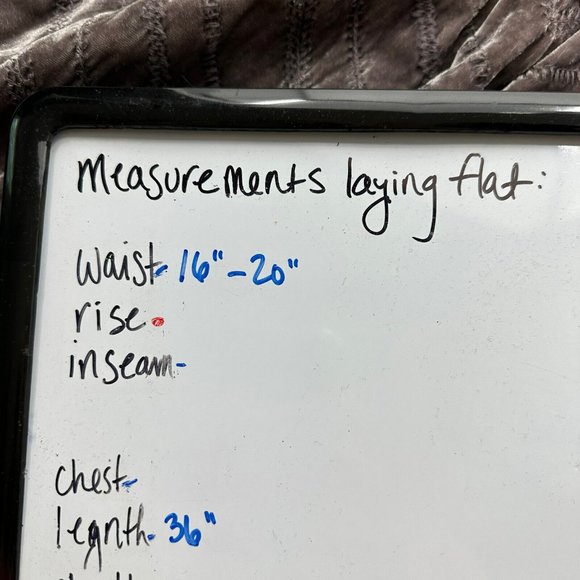 Measurements laying flat:
Waist- 16"-20"
rise-
inseam-
chest-
legnth- 36"